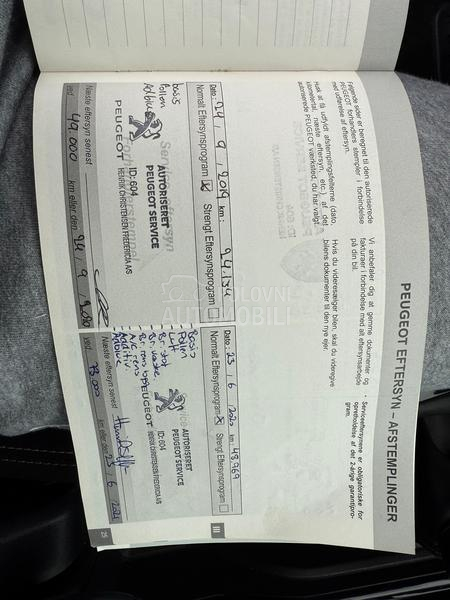 PEUGEOT EFTERSYN - AFSTEMPLINGER
Følgende sider er beregnet til den autoriserede
PEUGEOT forhandlers stempler i forbindelse
med udførelse af eftersyn.
Husk at få udfyldt afstemplingsfelterne (dato,
kilometertal, næste eftersyn, etc.) af det
autoriserede PEUGEOT værksted, du har valgt.
Vi anbefaler dig at gemme dokumenter og
fakturaer i forbindelse med alt eftersynsarbejde
på din bil.
Hvis du videresælger bilen, skal du videregive
bilens dokumenter til den nye ejer.
- Serviceeftersynene er obligatoriske for
opretholdelse af det 2-årige garantipro-
gram.
Dato: 24 / 9 / 2019 km: 24.134
Normalt Eftersynsprogram Strengt Eftersynsprogram
Basis
Pollen
Adblue
PEUGEOT
AUTORISERET
PEUGEOT SERVICE
ID: 604
HENRIK CHRISTENSEN FREDERICIA A/S
Næste eftersyn senest
ved 49.000 km eller den 9
Dato: 23 / 6 / 2020 km: 48.969
Normalt Eftersynsprogram Strengt Eftersynsprogram
Basis
Pollen
Luft
Adblue
PEUGEOT
AUTORISERET
PEUGEOT SERVICE
ID: 604
HENRIK CHRISTENSEN FREDERICIA A/S
Næste eftersyn senest
ved 73.000 km eller den 23 / 6 / 2021
III
25
POLOVNI
AUTOMOBILI